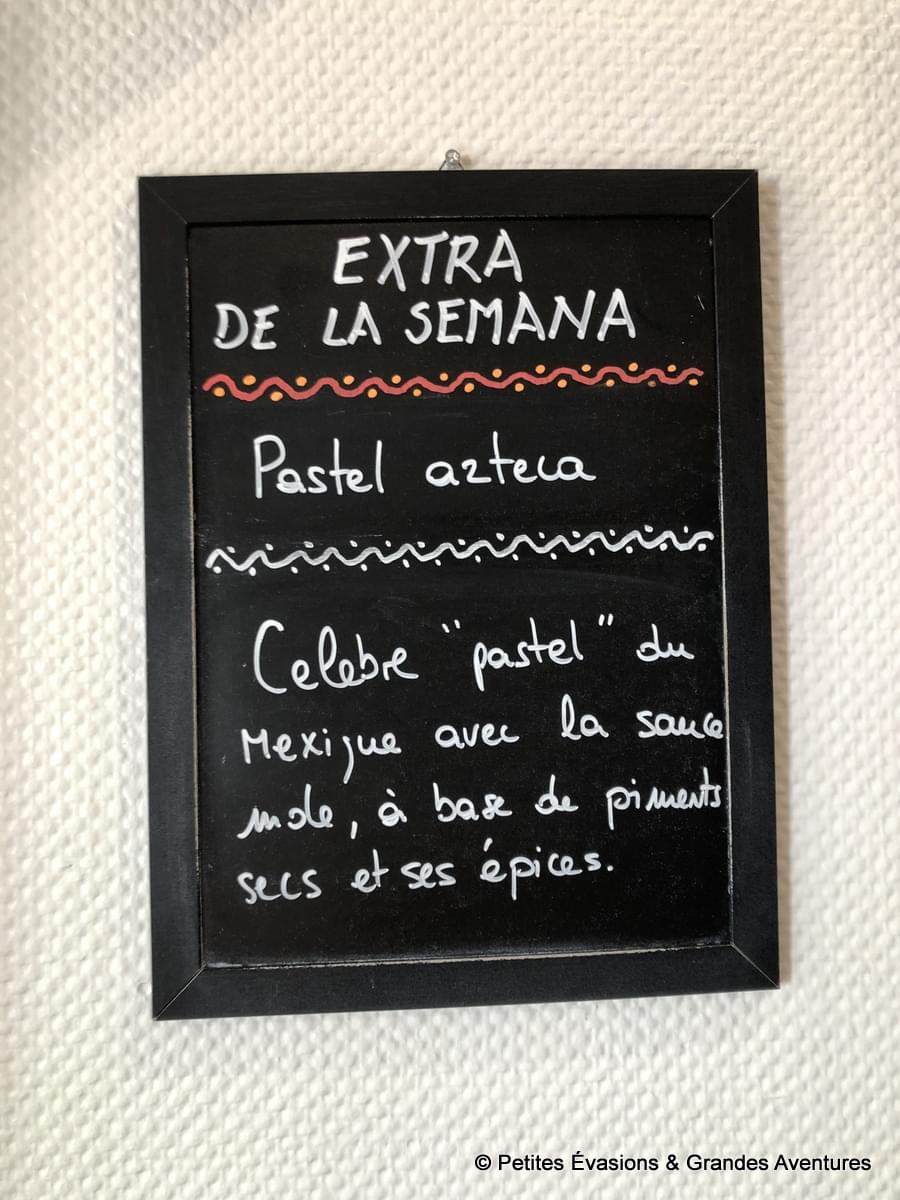 EXTRA
DE LA SEMANA
Pastel azteca
Celebre "pastel" du
Mexique avec la sauce
mole, à base de piments
secs et ses épices.
© Petites Évasions & Grandes Aventures